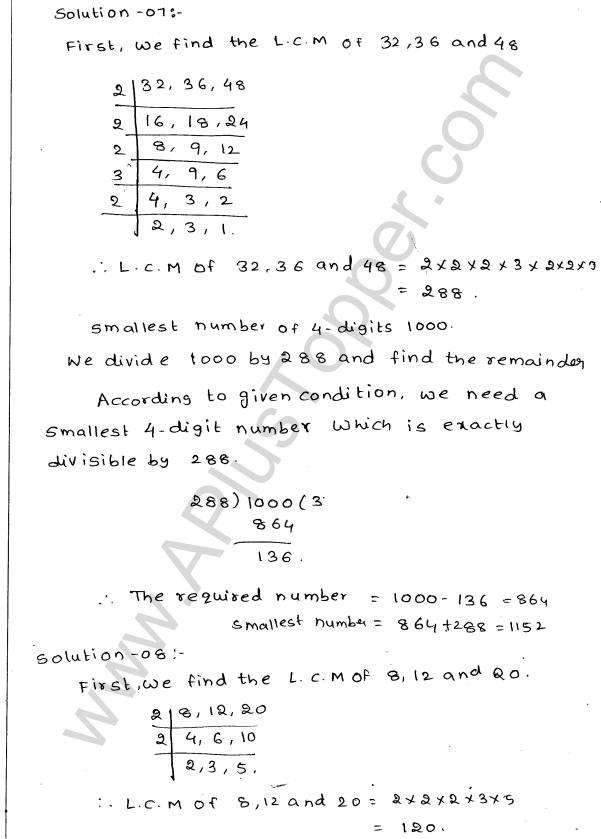 Solution -07:-
First, we find the L.C.M of 32,36 and 48
2 | 32, 36, 48
2 | 16, 18, 24
2 | 8, 9, 12
3 | 4, 9, 6
2 | 4, 3, 2
2, 3, 1.
∴ L.C.M of 32,36 and 48 = 2×2×2×3×2×2×3
= 288.
Smallest number of 4-digits 1000.
We divide 1000 by 288 and find the remainder
According to given condition, we need a
Smallest 4-digit number which is exactly
divisible by 288.
288) 1000 (3
864
136.
∴ The required number = 1000 - 136 = 864
Smallest number = 864+288 = 1152
Solution -08:-
First, we find the L.C.M of 8, 12 and 20.
2 | 8, 12, 20
2 | 4, 6, 10
2, 3, 5.
∴ L.C.M of 8,12 and 20 = 2×2×2×3×5
= 120.
www.APlusTopper.com